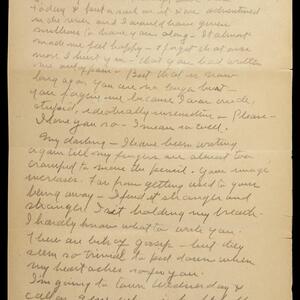 today & feel as if I am
in the river and I would have given
millions to have you along – It almost
made me feel happy – I forgot that once
more I hurt you – that you had written
me and
long ago. You are no longer hurt –
you forgive me because I was crude,
stupid, idiotically insensitive – Please –
I love you so – I mean so well.
My darling – I have been writing
again till my fingers are almost too
cramped to move the pencil. Your image
increases. Far from getting used to your
being away – I find it stranger and
stranger. I sit holding my breath –
I hardly know what to write you.
There are bits of gossip – but they
seem so trivial to put down when
my heart aches so for you.
I'm going to town Wednesday &